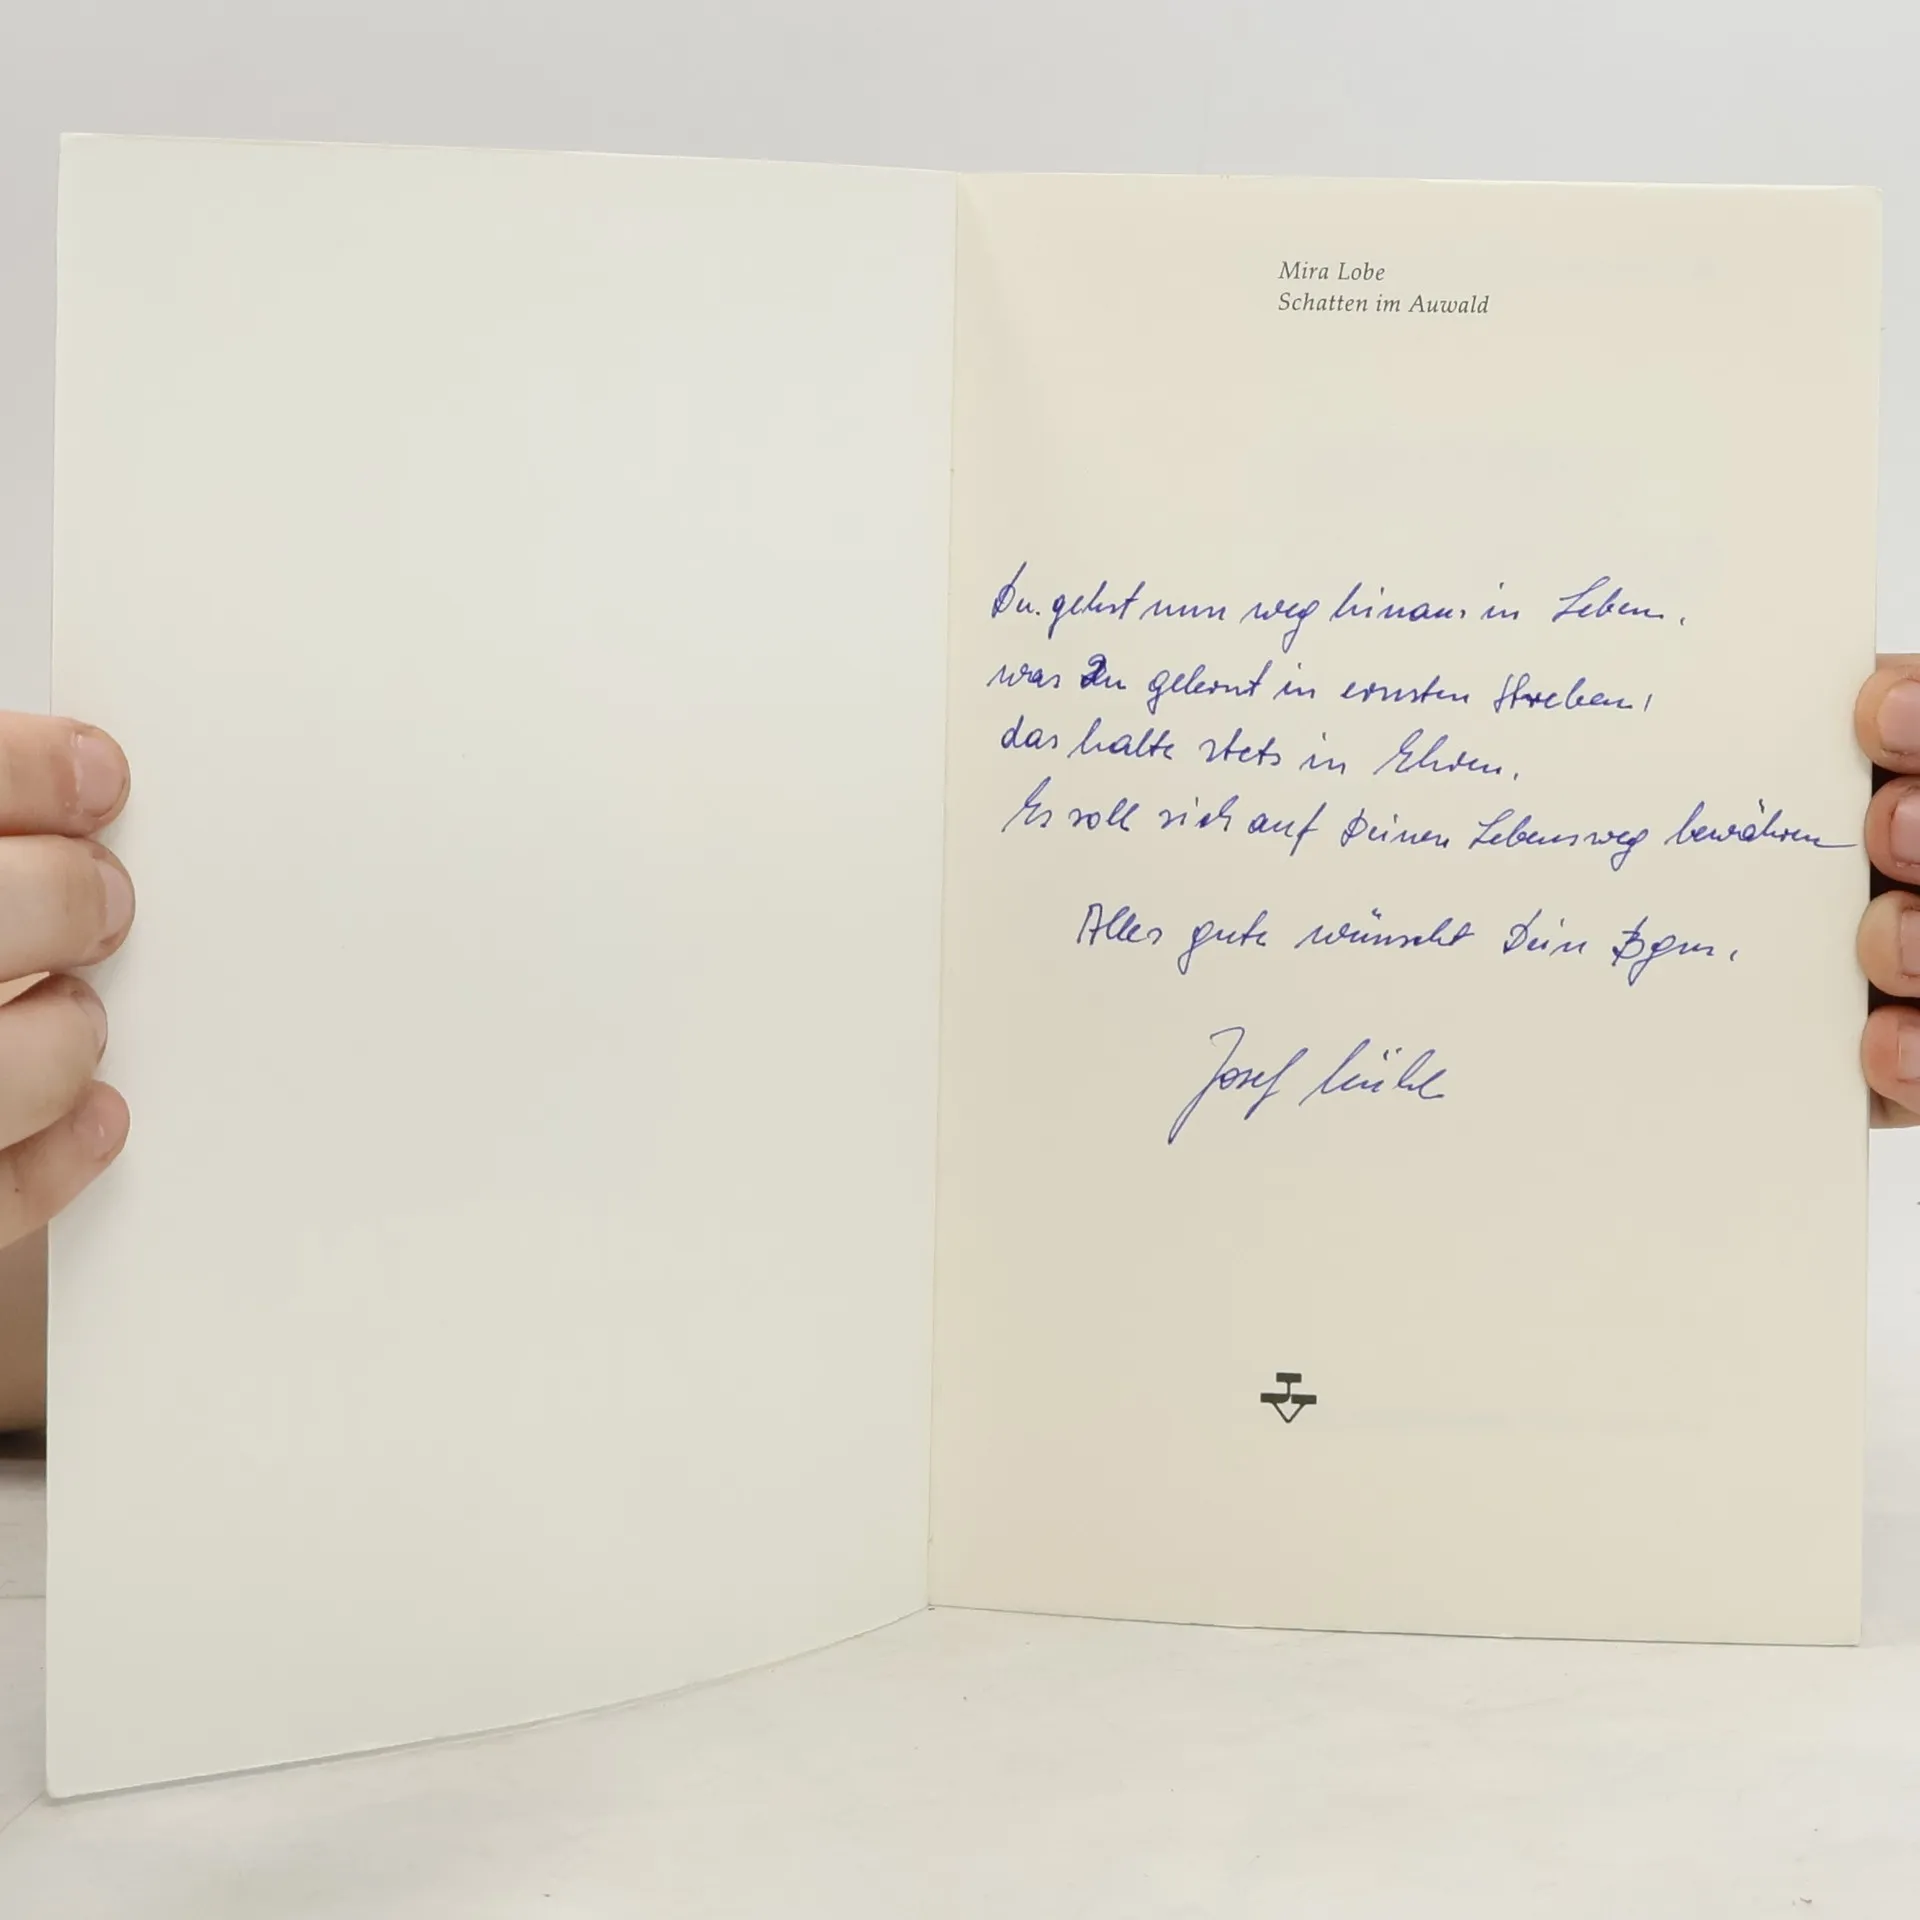 Mira Lobe
Schatten im Auwald
Du gehst nun weg hinaus in Leben,
was Du gelernt in ernsten Streben,
das halte stets in Ehren.
Es soll sich auf Deinen Lebensweg bewähren
Alles gute wünscht Dein Bgm.
Josef